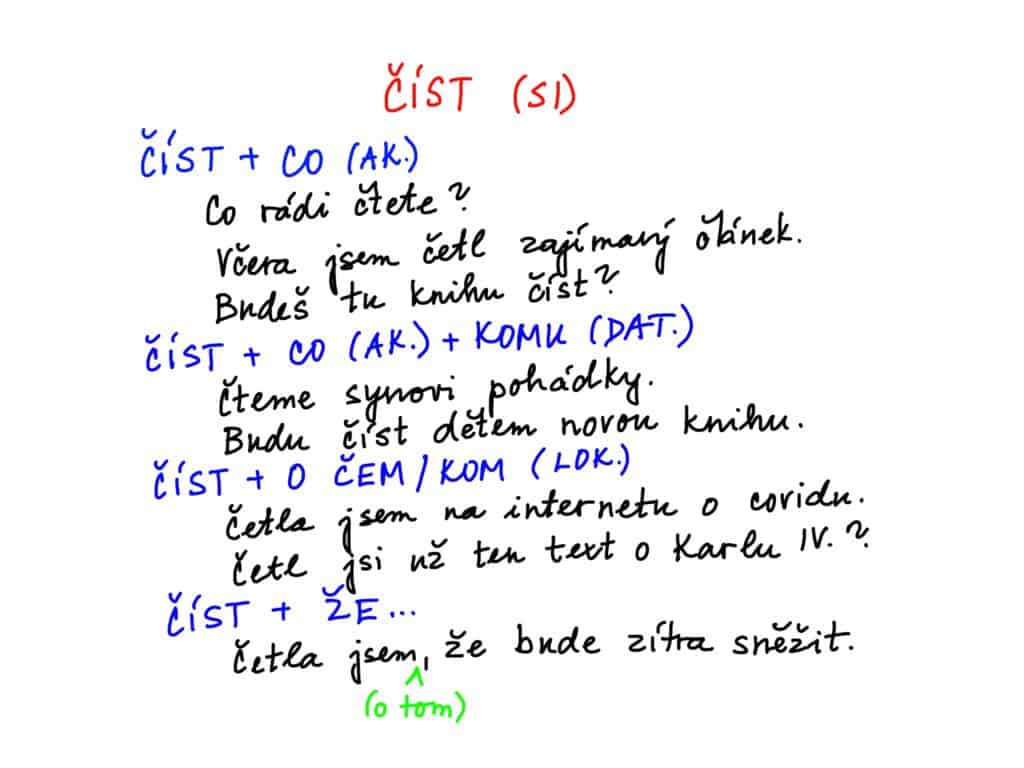 ČÍST (SI)
ČÍST + CO (AK.)
Co rádi čtete?
Včera jsem četl zajímavý článek.
Budeš tu knihu číst?
ČÍST + CO (AK.) + KOMU (DAT.)
Čteme synovi pohádky.
Budu číst dětem novou knihu.
ČÍST + O ČEM/KOM (LOK.)
Četla jsem na internetu o covidu.
Četl jsi už ten text o Karlu IV.?
ČÍST + ŽE...
Četla jsem, že bude zítra sněžit.
(o tom)